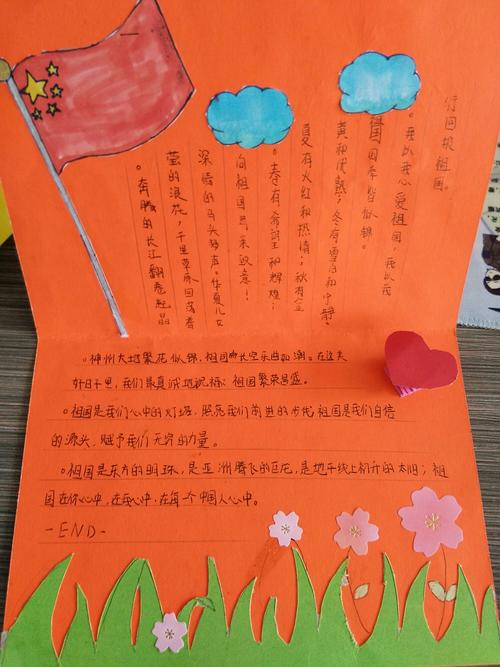 。奔腾的长江翻卷起晶
莹的浪花，千里草原回荡着
深情的马头琴声。华夏儿女
向祖国母亲致意！
。春有希望和辉煌；
夏有火红和热情；秋有金
黄和成熟；冬有雪白和宁静。
祖国四季皆似锦。
。我以我心爱祖国，我以我
行回报祖国。
。神州大地繁花似锦，祖国长空乐曲如潮。在这大
好日子里，我们最真诚地祝福：祖国繁荣昌盛。
。祖国是我们心中的灯塔，照亮我们前进的步伐。祖国是我们自信
的源头，赋予我们无穷的力量。
。祖国是东方的明珠，是亚洲腾飞的巨龙，是地平线上初升的太阳；祖
国在你心中，在我心中，在每个中国人心中。
-END-